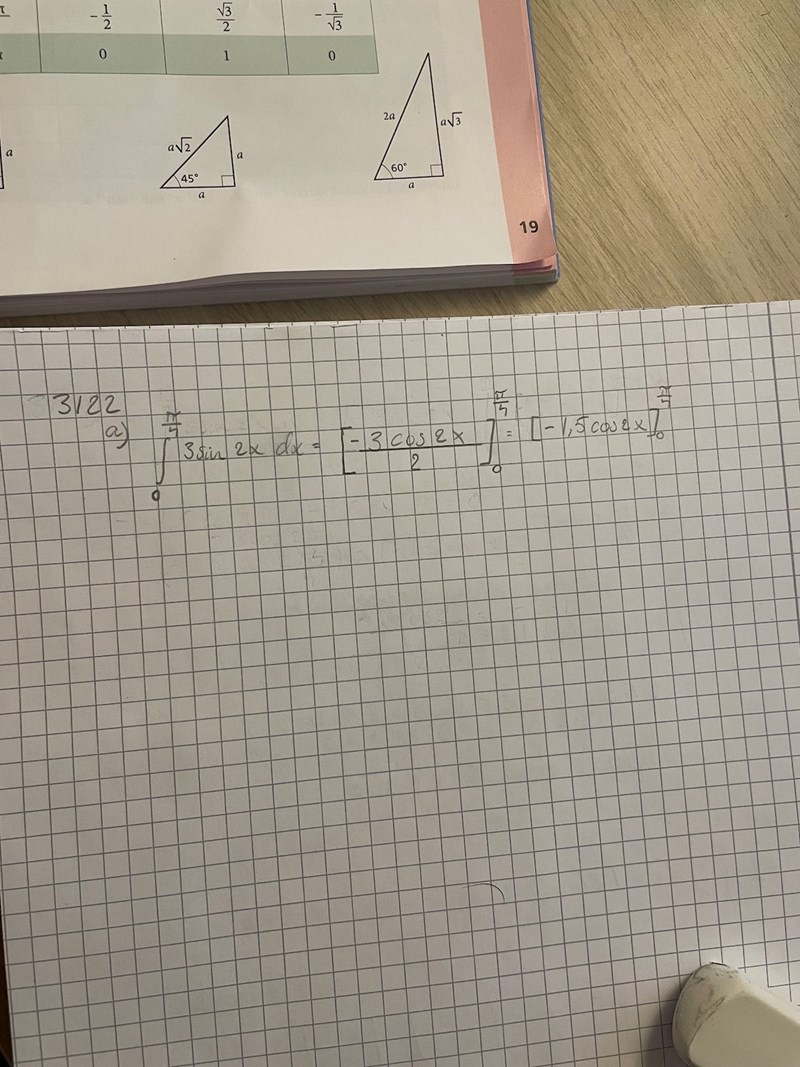 -1/2 √3/2 -1/√3
0 1 0
a
a√2 a 45° a
2a a√3 60° a
19
3122
a) ∫₀^(π/4) 3 sin 2x dx = [-3 cos 2x / 2]₀^(π/4) = [-1,5 cos 2x]₀^(π/4)